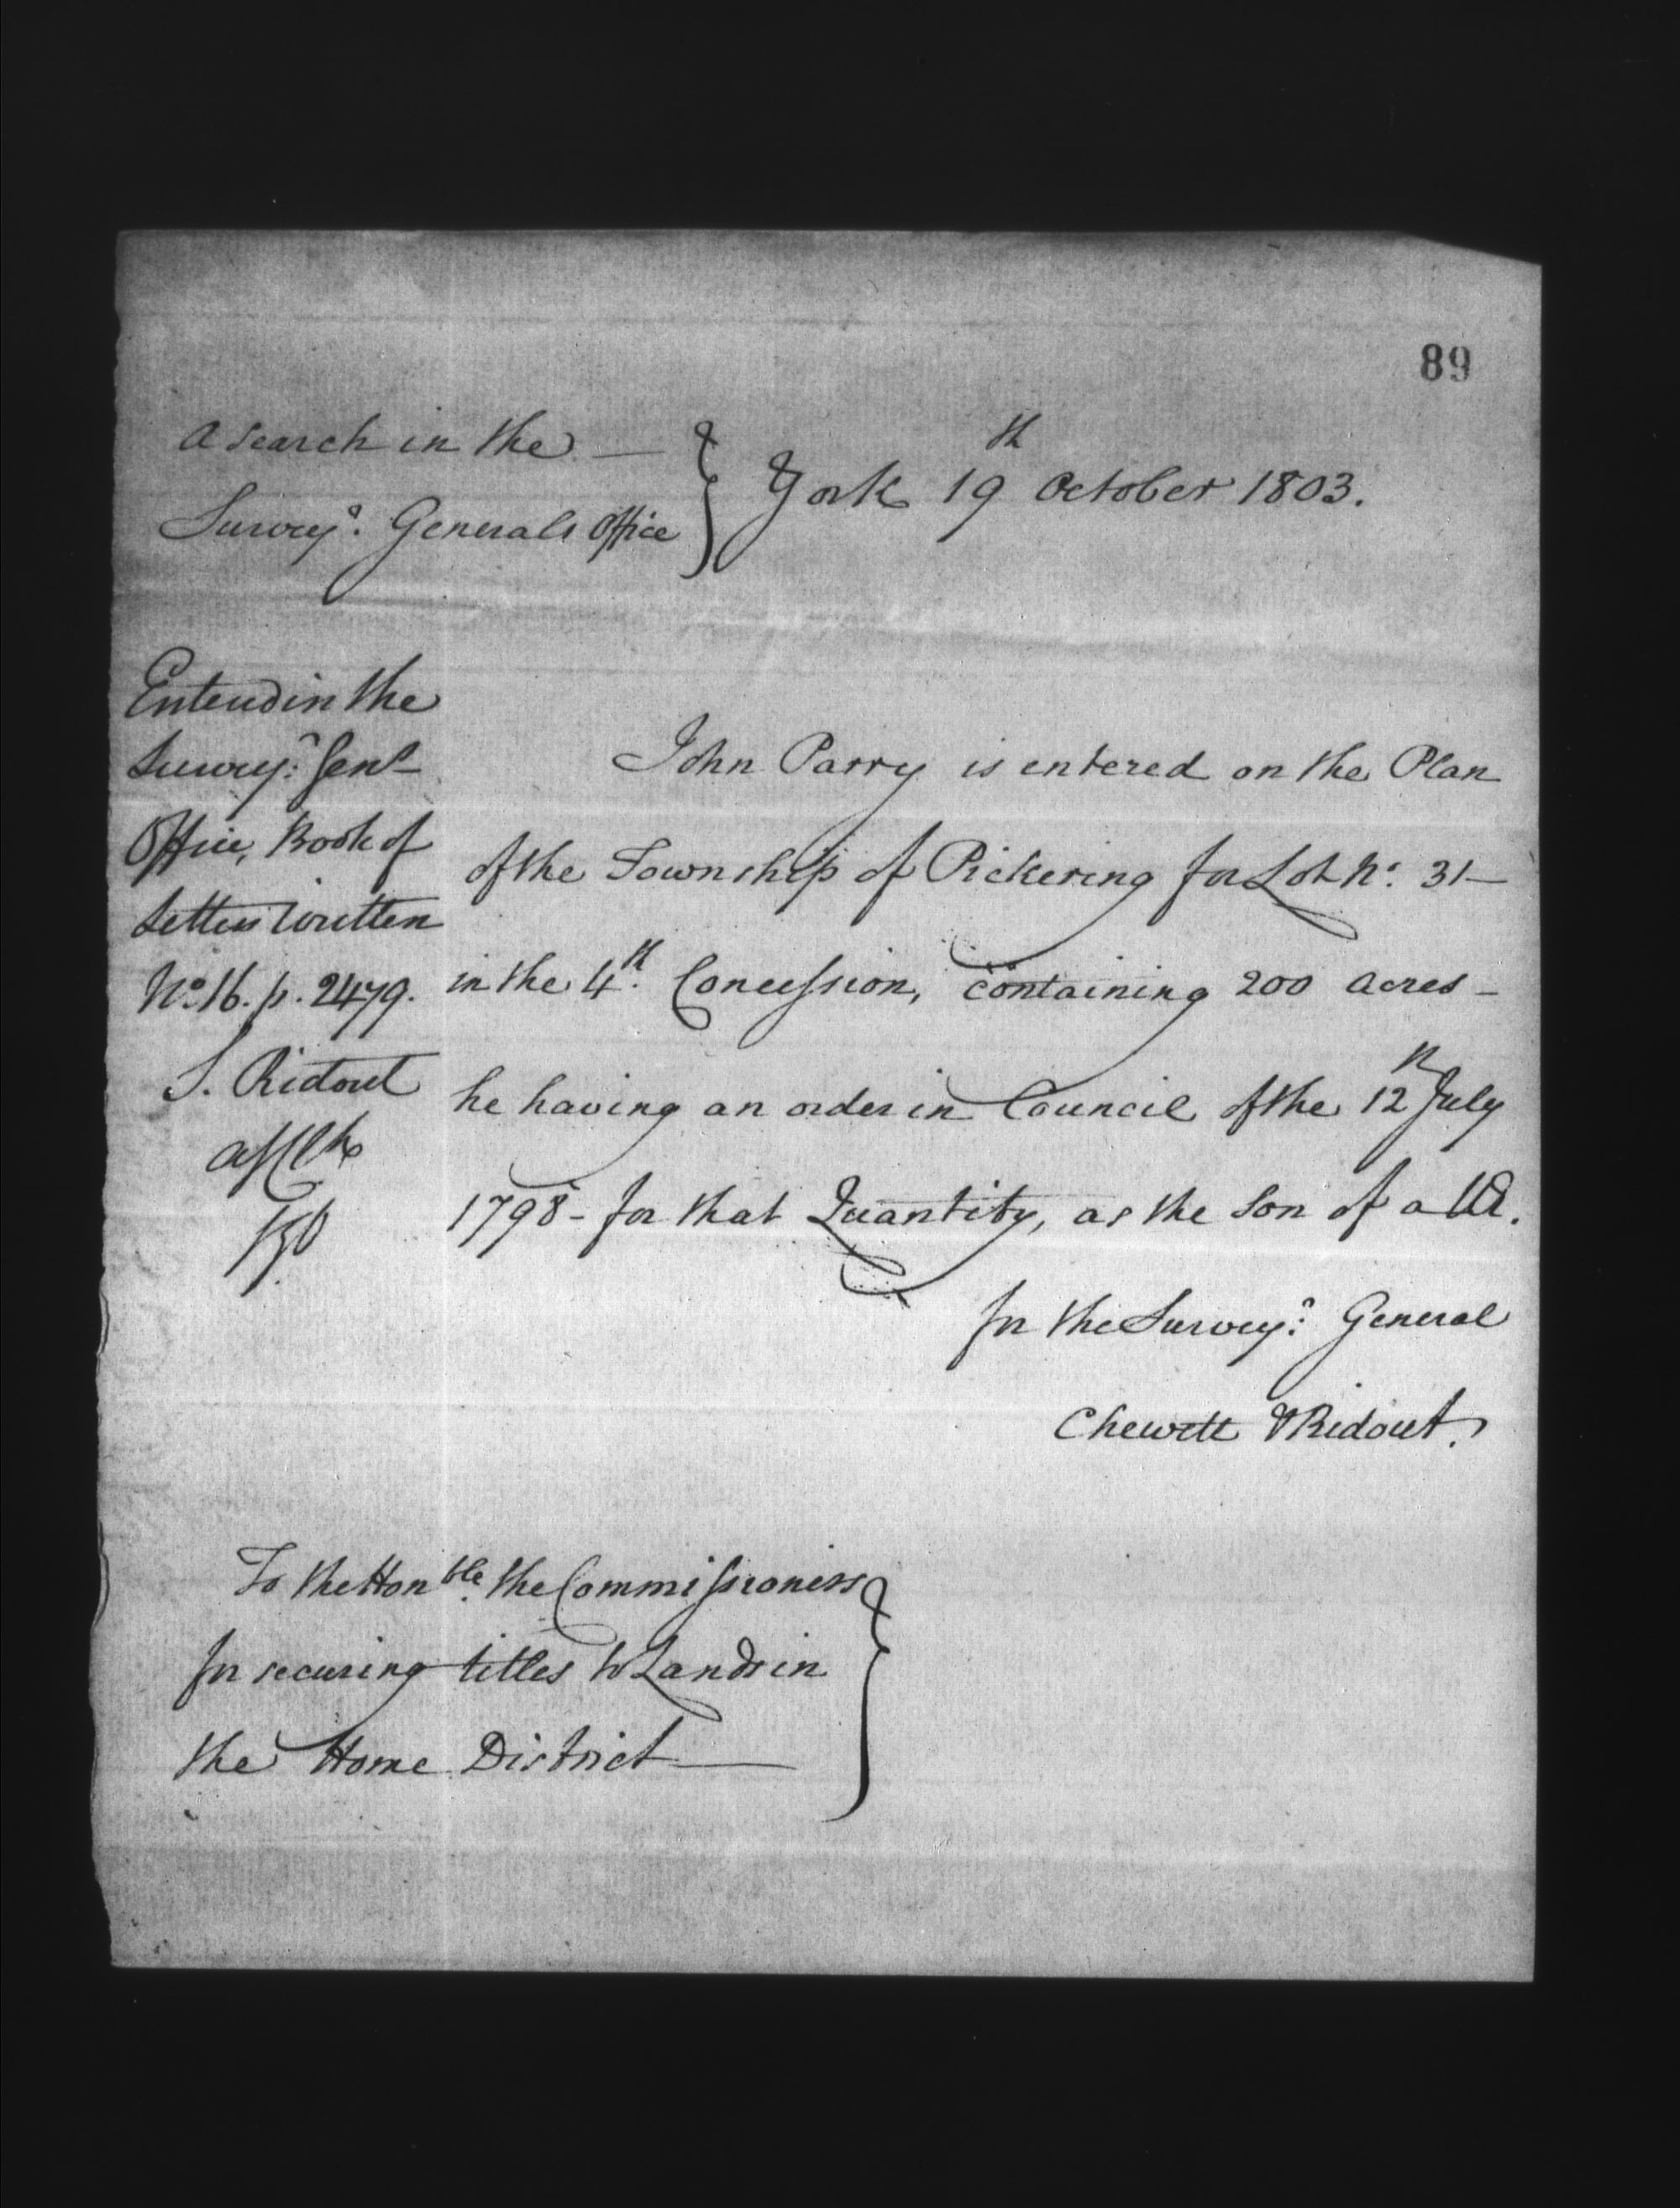 89
A search in the —
Survey.r Generals Office
York 19th October 1803.
Entered in the
Survey.r Genl
Office, Book of
Letters written
No. 16. p. 2479.
S. Ridout
John Parry is entered on the Plan
of the Township of Pickering for Lot No. 31 —
in the 4th Concession, containing 200 acres —
he having an order in Council of the 12th July
1798 - for that Quantity, as the Son of a UE.
for the Survey.r General
Chewett & Ridout.
To the Honble. the Commissioners
for securing titles to Lands in
the Home District —